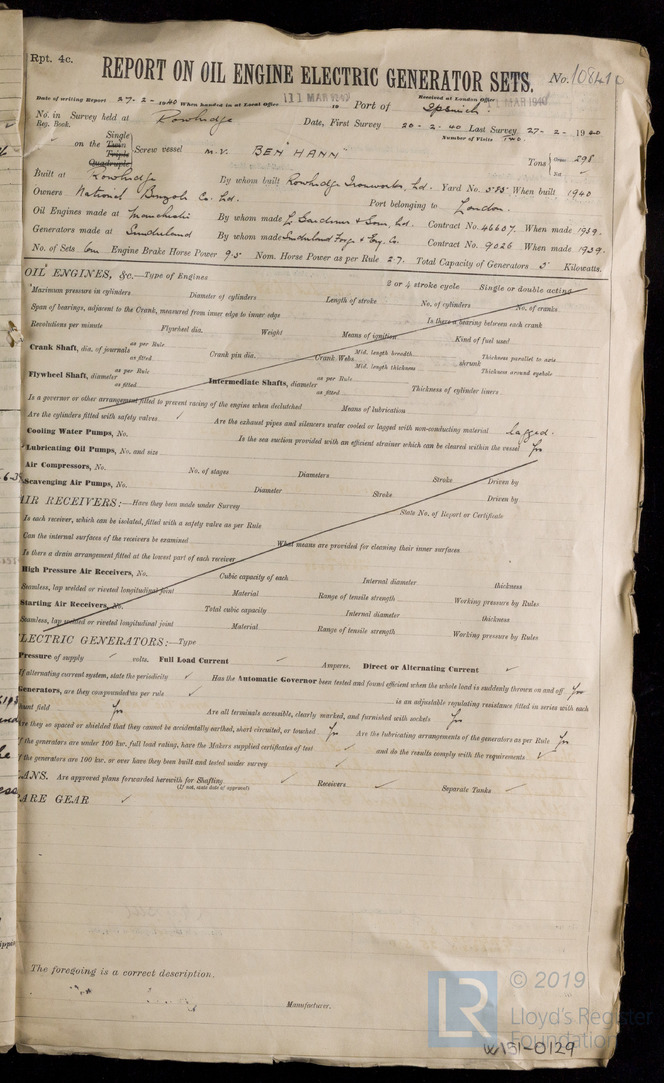 Rpt. 4c.
REPORT ON OIL ENGINE ELECTRIC GENERATOR SETS.
No. 108410
Date of writing Report 27-2-1940 When handed in at Local Office 11 MAR 1940 Port of Ipswich. Received at London Office MAR 1940
No. in Reg. Book. Survey held at Rowhidge Date, First Survey 20-2-40 Last Survey 27-2-1940
Number of Visits Two
on the Single Twin Triple Quadruple Screw vessel M.V. "BEN HANN" Tons Gross 298 Net ✓
Built at Rowhidge By whom built Rowhidge Ironworks, Ltd. Yard No. 585 When built 1940
Owners National Benzole Co. Ltd. Port belonging to London
Oil Engines made at Manchester By whom made L. Gardner & Sons, Ltd. Contract No. 46607 When made 1939.
Generators made at Sunderland By whom made Sunderland Forge & Eng. Co. Contract No. 9026 When made 1939.
No. of Sets One Engine Brake Horse Power 9.5 Nom. Horse Power as per Rule 2.7. Total Capacity of Generators 5 Kilowatts.
OIL ENGINES, &c.—Type of Engines 2 or 4 stroke cycle Single or double acting
Maximum pressure in cylinders Diameter of cylinders Length of stroke No. of cylinders No. of cranks
Span of bearings, adjacent to the Crank, measured from inner edge to inner edge Is there a bearing between each crank
Revolutions per minute Flywheel dia. Weight Means of ignition Kind of fuel used
Crank Shaft, dia. of journals as per Rule as fitted Crank pin dia. Crank Webs Mid. length breadth Mid. length thickness shrunk Thickness parallel to axis Thickness around eyehole
Flywheel Shaft, diameter as per Rule as fitted Intermediate Shafts, diameter as per Rule as fitted Thickness of cylinder liners
Is a governor or other arrangement fitted to prevent racing of the engine when declutched Means of lubrication
Are the cylinders fitted with safety valves ✓ Are the exhaust pipes and silencers water cooled or lagged with non-conducting material lagged.
Cooling Water Pumps, No. Is the sea suction provided with an efficient strainer which can be cleared within the vessel Yes
Lubricating Oil Pumps, No. and size
Air Compressors, No. No. of stages Diameters Stroke Driven by
Scavenging Air Pumps, No. Diameter Stroke Driven by
AIR RECEIVERS:—Have they been made under Survey State No. of Report or Certificate
Is each receiver, which can be isolated, fitted with a safety valve as per Rule
Can the internal surfaces of the receivers be examined What means are provided for cleaning their inner surfaces
Is there a drain arrangement fitted at the lowest part of each receiver
High Pressure Air Receivers, No. Cubic capacity of each Internal diameter thickness
Seamless, lap welded or riveted longitudinal joint Material Range of tensile strength Working pressure by Rules
Starting Air Receivers, No. Total cubic capacity Internal diameter thickness
Seamless, lap welded or riveted longitudinal joint Material Range of tensile strength Working pressure by Rules
LECTRIC GENERATORS:—Type
Pressure of supply ✓ volts. Full Load Current ✓ Amperes. Direct or Alternating Current ✓
If alternating current system, state the periodicity ✓ Has the Automatic Governor been tested and found efficient when the whole load is suddenly thrown on and off Yes
Generators, are they compounded as per rule ✓ is an adjustable regulating resistance fitted in series with each
unt field Yes Are all terminals accessible, clearly marked, and furnished with sockets Yes
re they so spaced or shielded that they cannot be accidentally earthed, short circuited, or touched Yes Are the lubricating arrangements of the generators as per Rule Yes
f the generators are under 100 kw. full load rating, have the Makers supplied certificates of test ✓ and do the results comply with the requirements ✓
f the generators are 100 kw. or over have they been built and tested under survey ✓
ANS. Are approved plans forwarded herewith for Shafting ✓ Receivers ✓ Separate Tanks ✓
(If not, state date of approval)
ARE GEAR ✓
The foregoing is a correct description.
Manufacturer.
© 2019
LR
Lloyd's Register
Foundation
WA151-0129